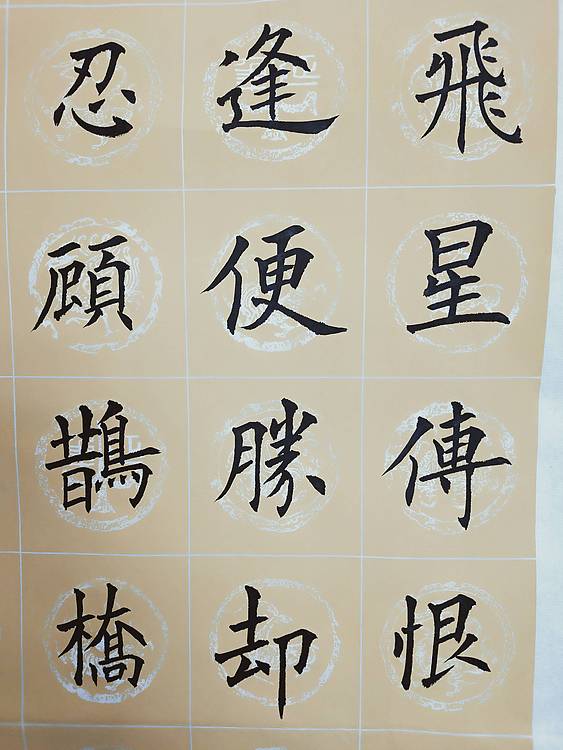 飛星傳恨
逢便勝却
忍顧鵲橋